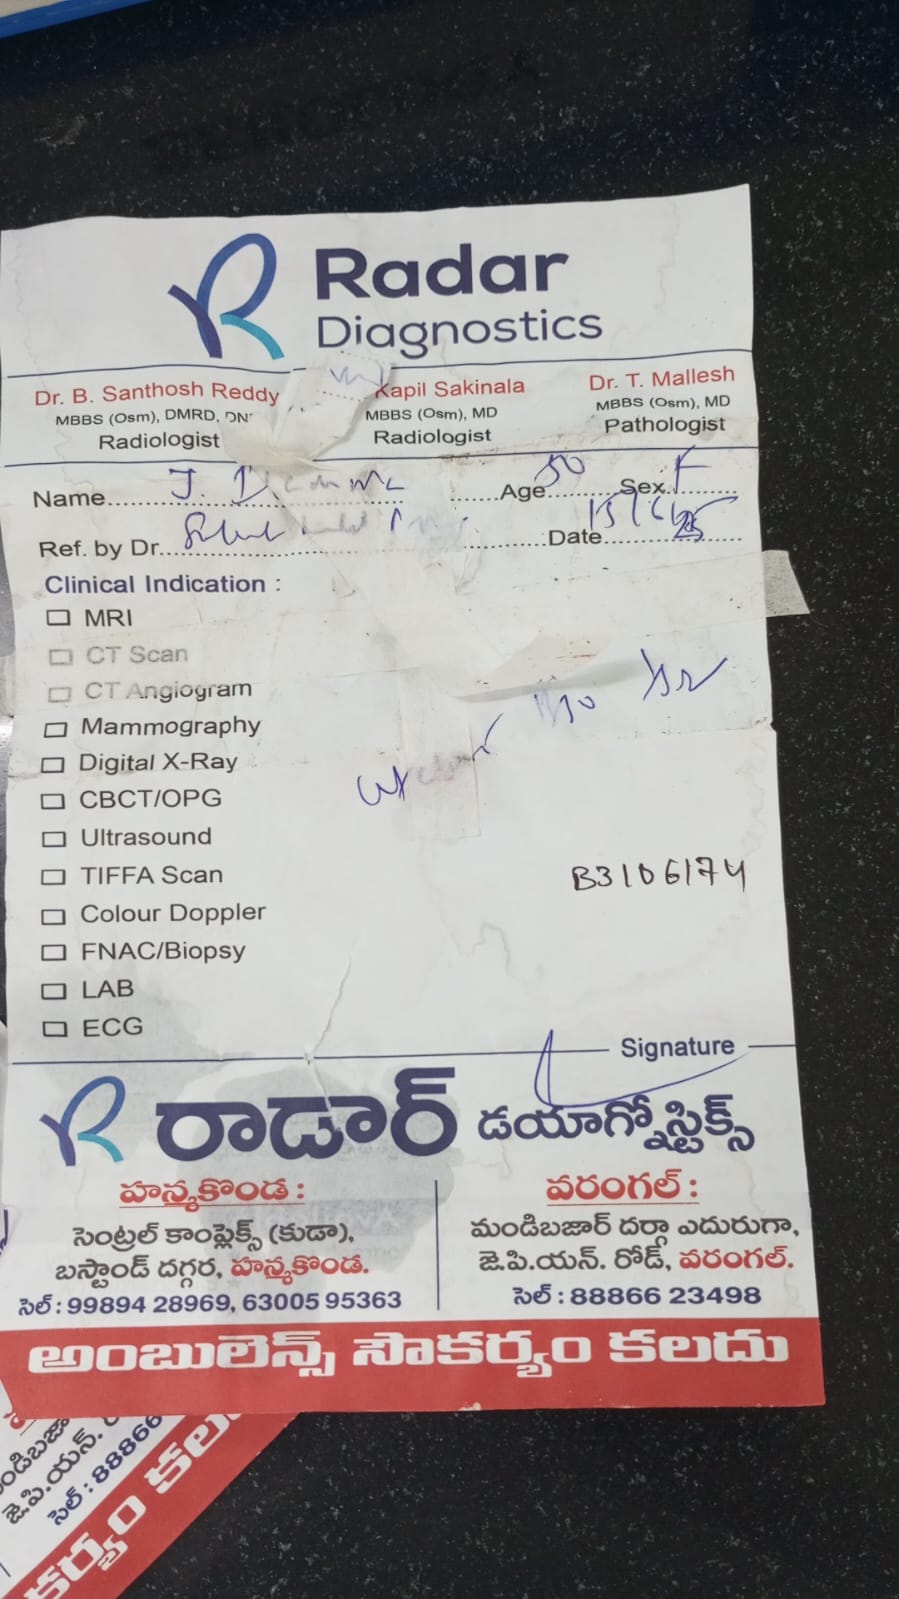 Radar
Diagnostics
Dr. B. Santhosh Reddy
MBBS (Osm), DMRD,
Radiologist
Kapil Sakinala
MBBS (Osm), MD
Radiologist
Dr. T. Mallesh
MBBS (Osm), MD
Pathologist
Name J. Age 50 Sex F
Ref. by Dr. Date 15/6/25
Clinical Indication :
MRI
CT Scan
CT Angiogram
Mammography
Digital X-Ray
CBCT/OPG
Ultrasound
TIFFA Scan
B3106174
Colour Doppler
FNAC/Biopsy
LAB
ECG
Signature
రాడార్ డయాగ్నోస్టిక్స్
హన్మకొండ :
సెంట్రల్ కాంప్లెక్స్ (కుడా),
బస్టాండ్ దగ్గర, హన్మకొండ.
సెల్ : 99894 28969, 63005 95363
వరంగల్ :
మండిబజార్ దర్గా ఎదురుగా,
జె.పి.యన్. రోడ్, వరంగల్.
సెల్ : 88866 23498
అంబులెన్స్ సౌకర్యం కలదు
జె.పి.యన్.
సెల్ : 88866